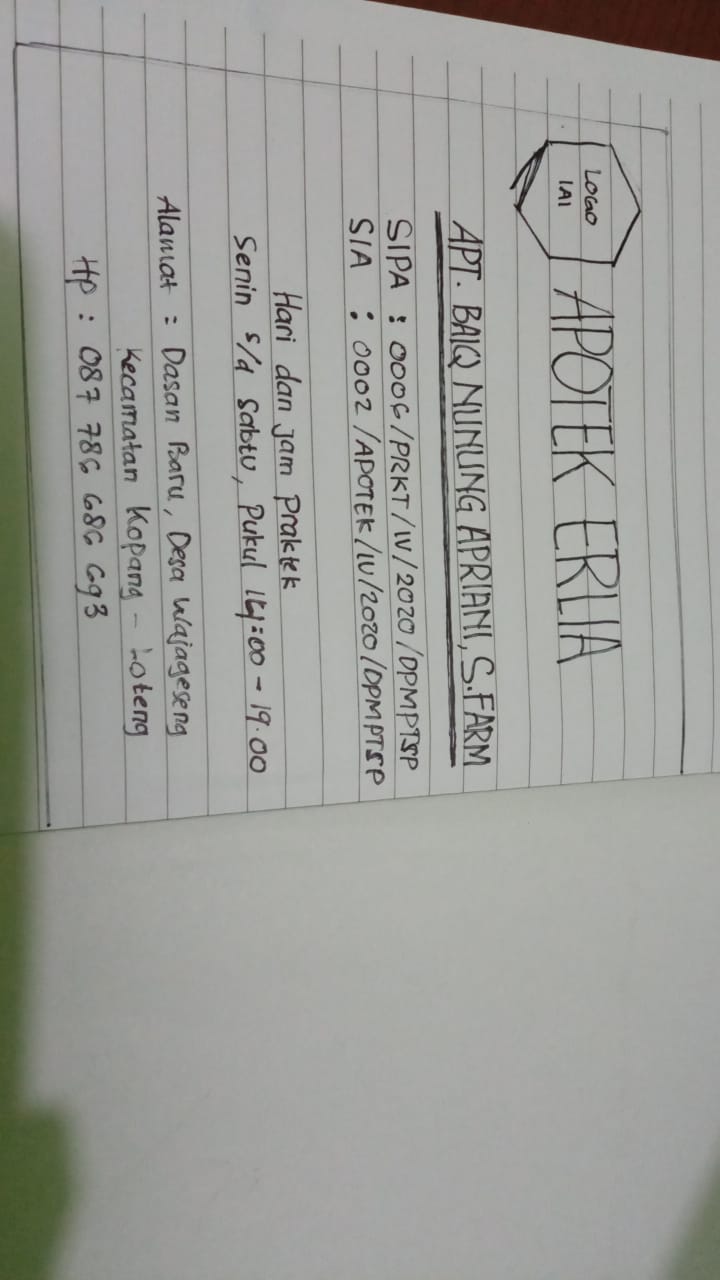 LOGO
IAI
APOTEK ERLIA
APT. BAIQ NUNUNG APRIANI, S.FARM
SIPA : 0006/PRKT/IV/2020/DPMPTSP
SIA : 0002/APOTEK/IV/2020/DPMPTSP
Hari dan jam Praktek
Senin s/d Sabtu, Pukul 14:00 - 19.00
Alamat = Dasan Baru, Desa Wajageseng
Kecamatan Kopang - Loteng
Hp : 087 786 686 693